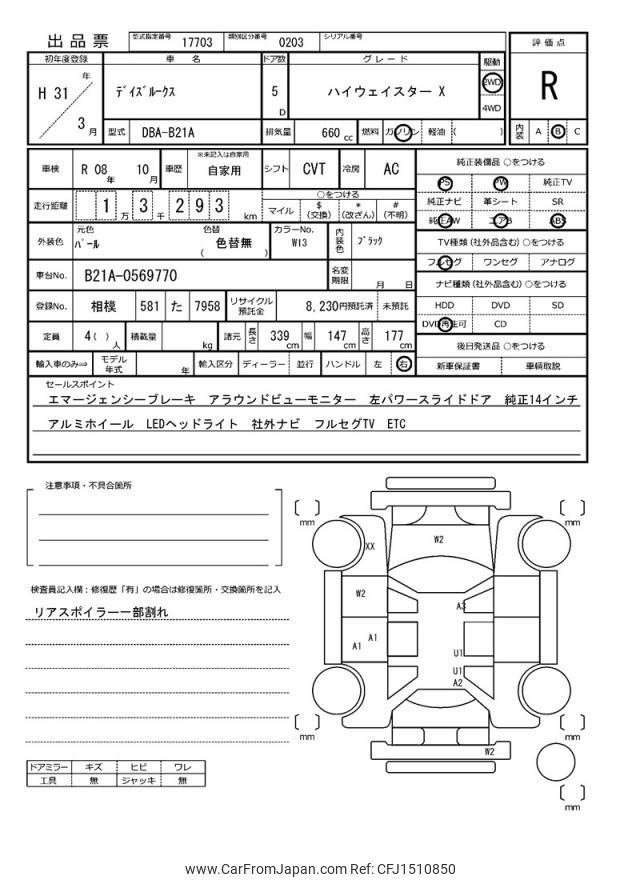 出品票 型式指定番号 17703 類別区分番号 0203 シリアル番号
初年度登録 車 名 ドア数 グレード 駆動 評価点
H 31 年 3 月 デイズルークス 5 D ハイウェイスター X 2WD 4WD R
型式 DBA-B21A 排気量 660 cc 燃料 ガソリン 軽油 ( ) 内装 A B C
車検 R 08 年 10 月 車歴 ※未記入は自家用 自家用 シフト CVT 冷房 AC 純正装備品 ○をつける
PS PW 純正TV
走行距離 1 万 3 千 2 9 3 km ○をつける 純正ナビ 革シート SR
マイル $ (交換) * (改ざん) # (不明) 純正AW エアB ABS
外装色 元色 パール 色替 ( 色替無 ) カラーNo. W13 内装色 ブラック TV種類 (社外品含む) ○をつける
フルセグ ワンセグ アナログ
車台No. B21A-0569770 名変期限 月 日 ナビ種類 (社外品含む) ○をつける
登録No. 相模 581 た 7958 リサイクル預託金 8,230円預託済 未預託 HDD DVD SD
定員 4 ( ) 人 積載量 kg 諸元 長さ 339 cm 幅 147 cm 高さ 177 cm DVD再生可 CD
後日発送品 ○をつける
輸入車のみ⇒ モデル年式 年 輸入区分 ディーラー 並行 ハンドル 左 右 新車保証書 車輌取説
セールスポイント
エマージェンシーブレーキ アラウンドビューモニター 左パワースライドドア 純正14インチ
アルミホイール LEDヘッドライト 社外ナビ フルセグTV ETC
注意事項・不具合箇所
検査員記入欄:修復歴「有」の場合は修復箇所・交換箇所を記入
リアスポイラー一部割れ
ドアミラー キズ ヒビ ワレ
工具 無 ジャッキ 無
mm mm
XX W2
W2 A3
A1 A1 U1
U1
A2
mm mm
W2
mm
www.CarFromJapan.com Ref: CFJ1510850